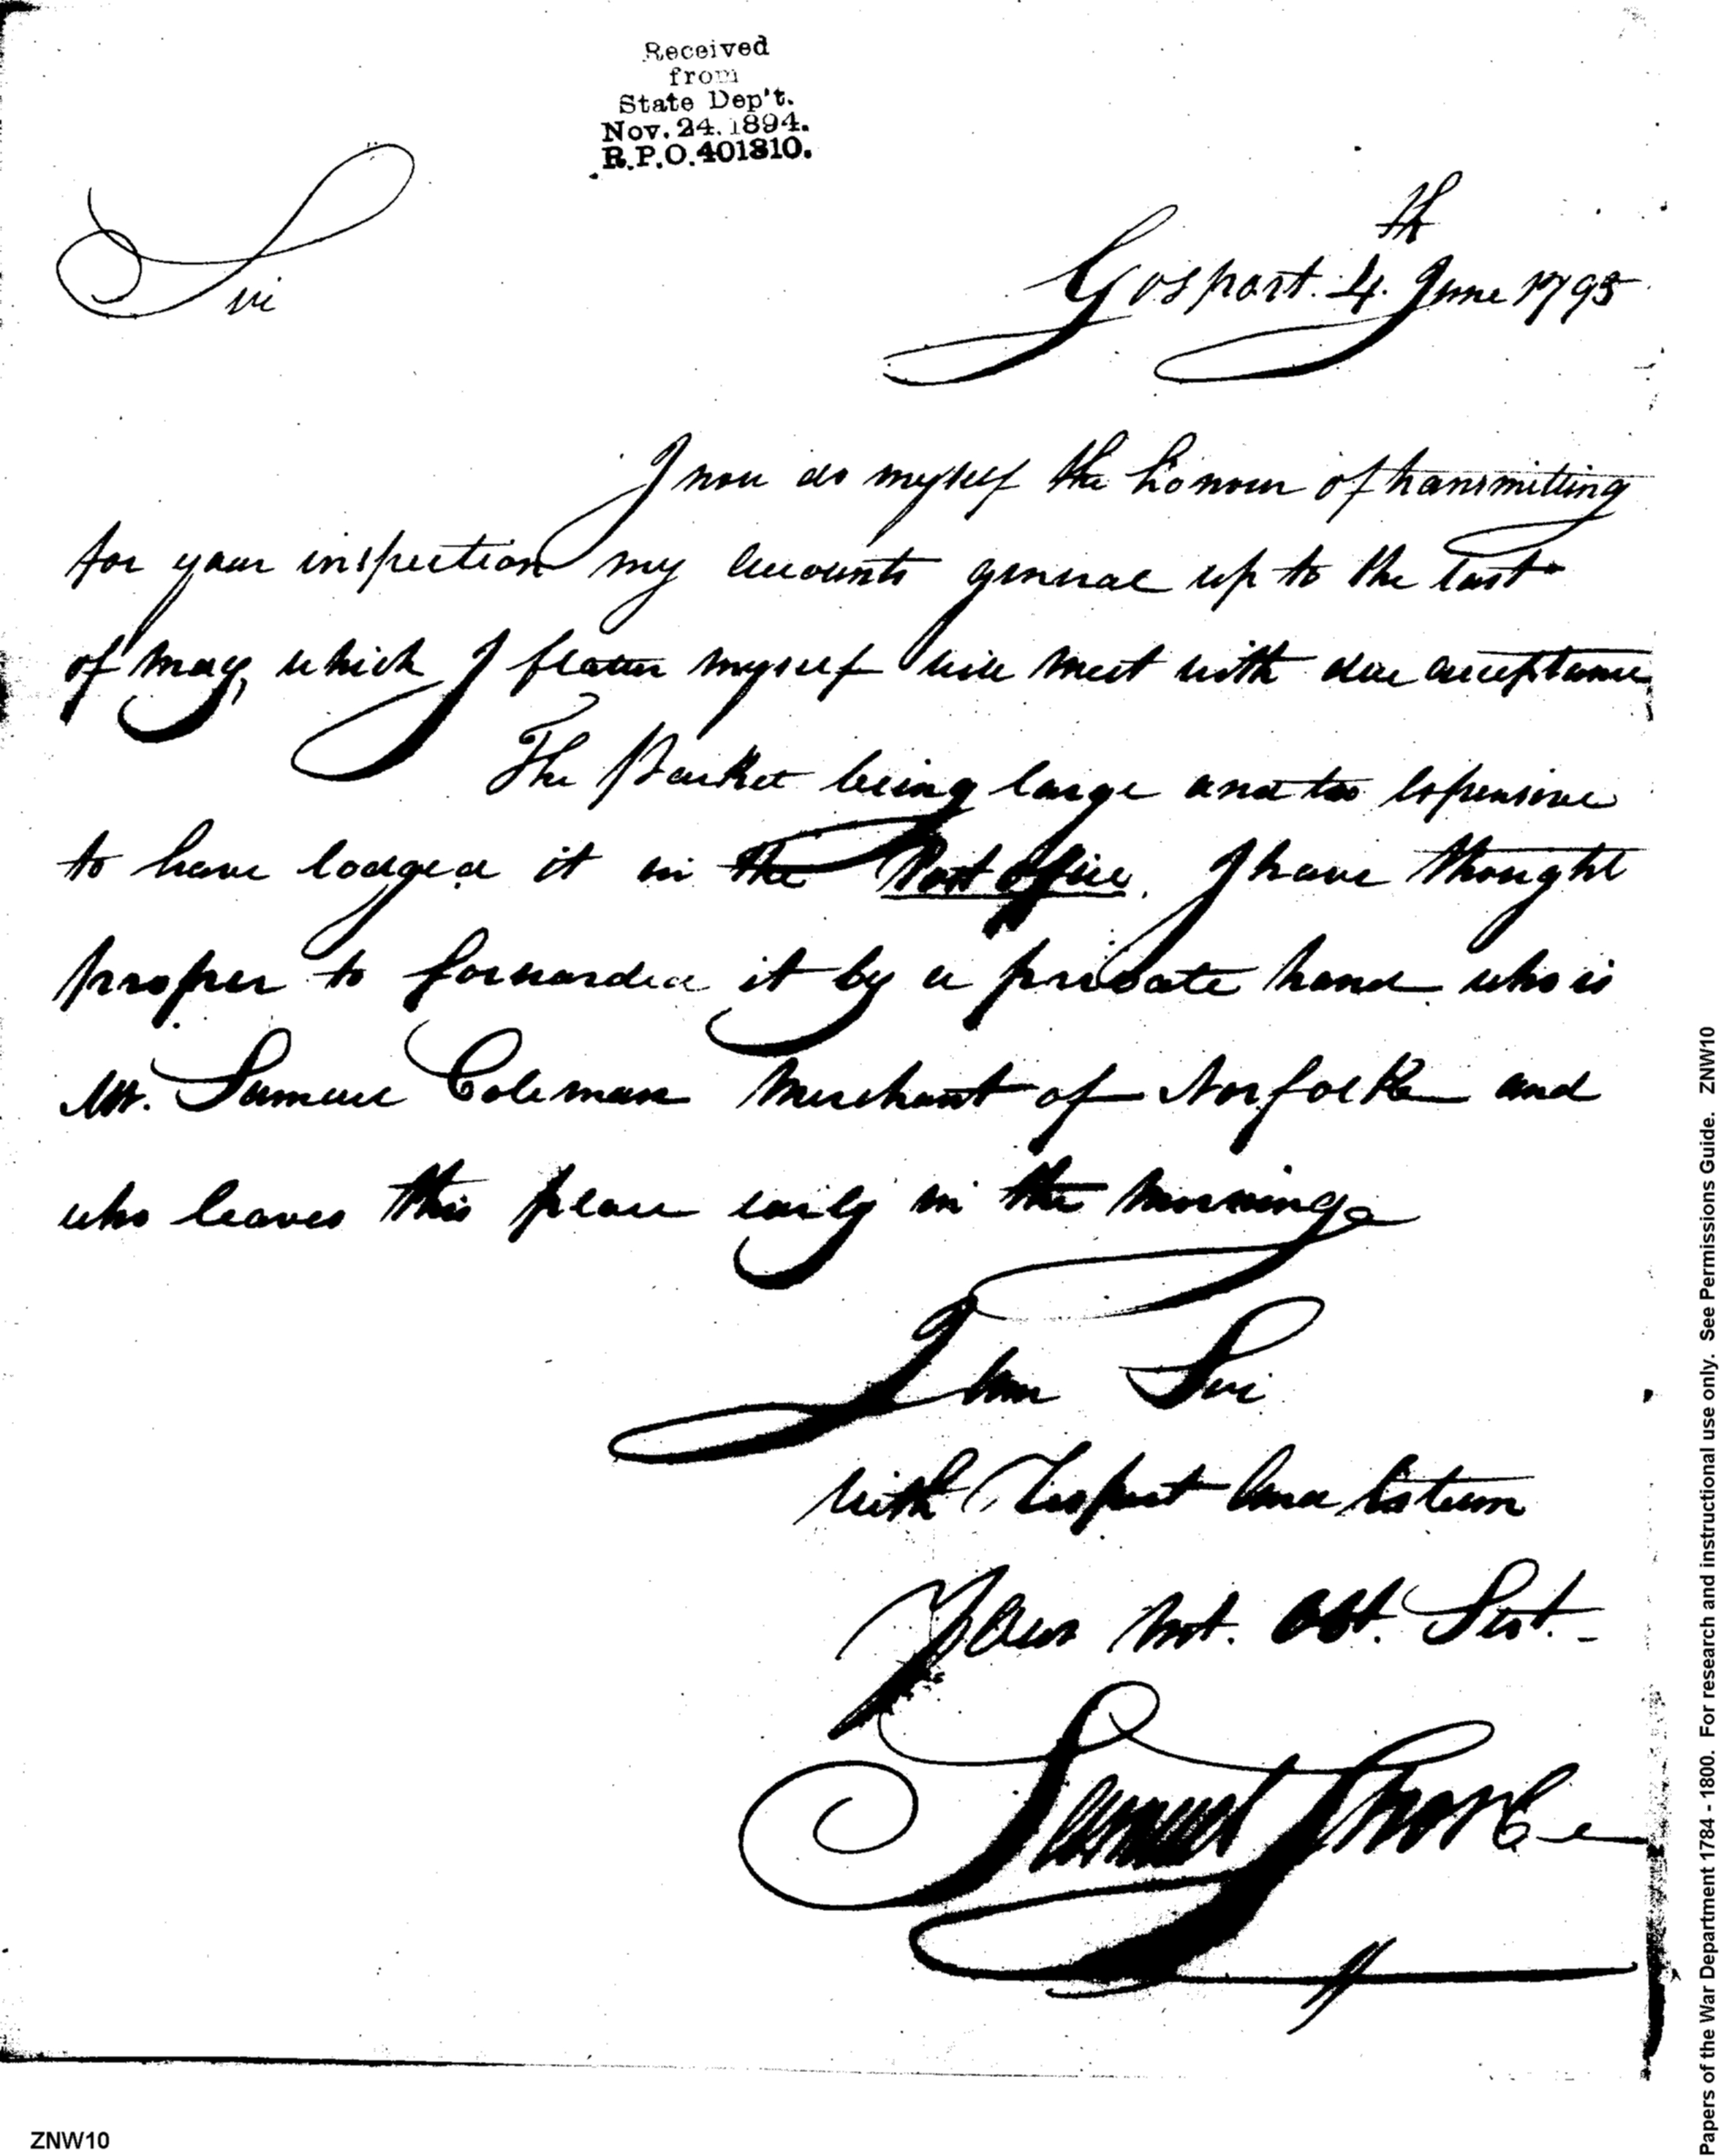 Received
from
State Dep't.
Nov. 24. 1894.
R.P.O. 401810.
Sir
Gosport. 4.th June 1795
I now do myself the honour of transmitting
for your inspection my accounts general up to the last
of may, which I flatter myself will meet with due acceptance
The Packet being large and too Expensive
to have lodged it in the Post office. I have thought
proper to forwarded it by a private hand who is
Mr. Samuel Coleman Merchant of Norfolk and
who leaves this place early in the morning
I am Sir
with Respect and Esteem
Your Mt. Obt. Sert.
Samuel
ZNW10
Papers of the War Department 1784 - 1800. For research and instructional use only. See Permissions Guide. ZNW10